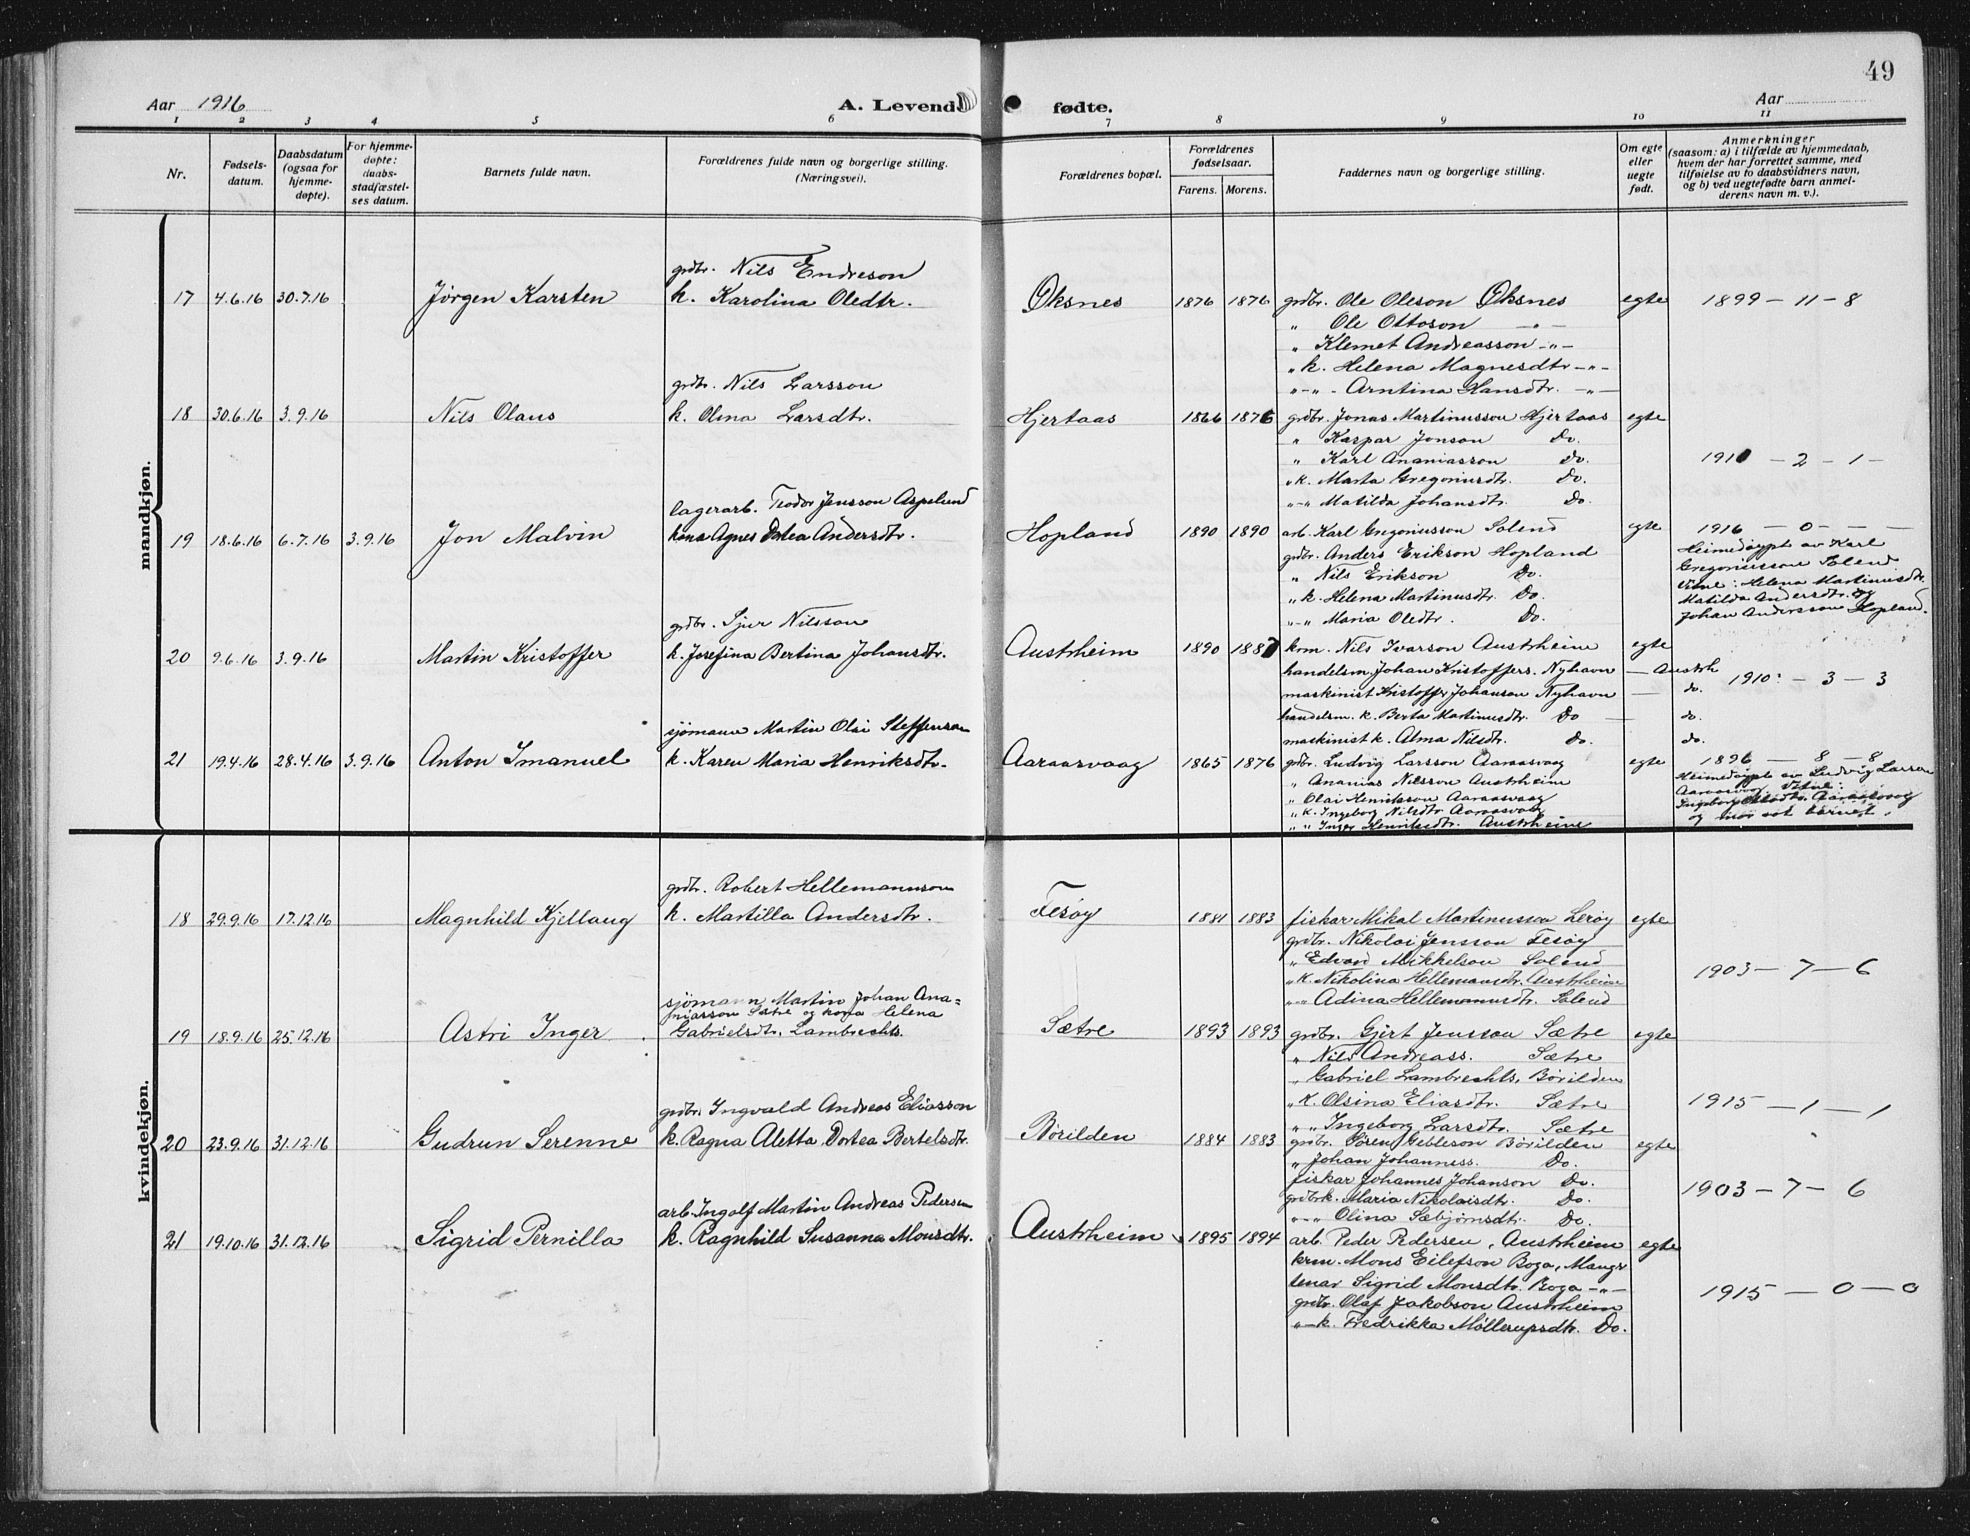 49
Aar 1916
A. Levende fødte.
Aar
1 2 3 4 5 6 7 8 9 10 11
Nr.
Fødsels-
datum.
Daabsdatum
(ogsaa for
hjemme-
døpte).
For hjemme-
døpte:
daabs-
stadfæstel-
ses datum.
Barnets fulde navn.
Forældrenes fulde navn og borgerlige stilling.
(Næringsvei).
Forældrenes bopæl.
Forældrenes
fødselsaar.
Farens. Morens.
Faddernes navn og borgerlige stilling.
Om egte
eller
uegte
født.
Anmerkninger
(saasom: a) i tilfælde av hjemmedaab,
hvem der har forrettet samme, med
tilføielse av to daabsvidners navn,
og b) ved uegtefødte barn anmel-
derens navn m. v.).
mandkjøn.
grdbr. Nils Endreson
17 4.6.16 30.7.16 Jørgen Karsten k. Karolina Oledtr. Øksnes 1876 1876 grdbr. Ole Oleson Øksnes egte 1899 – 11 – 8
" Ole Ottoson – " –
" Klemet Andreasson – " –
" k. Helena Magnesdtr – " –
" – " – Arntina Hansdtr. – " –
grdbr. Nils Larsson
18 30.6.16 3.9.16 Nils Olaus k. Olina Larsdtr. Hjertaas 1866 1876 grdbr. Jonas Martinusson Hjertaas egte
" Kaspar Jonson Do.
" Karl Ananiasson Do. 1910 – 2 – 1 –
" k. Marta Gregoriusdtr. Do.
" – " Matilda Johansdtr. Do.
lagerarb. Teodor Jensson Aspelund
19 18.6.16 6.7.16 3.9.16 Jon Malvin kona Agnes Dotea Andersdtr. Hopland 1890 1890 arb. Karl Gregoriusson Solend egte 1916 – 0 – – –
grdbr. Anders Erikson Hopland
" Nils Erikson Do.
" k. Helena Martinusdtr. Do.
" – " Maria Oledtr. Do.
Heimedøypt av Karl
Gregoriusson Solend
Vitne: Helena Martinusdtr.
Matilda Andersdtr. og
Johan Andersson Hopland.
grdbr. Sjur Nilsson
20 9.6.16 3.9.16 Martin Kristoffer k. Josefina Bertina Johansdtr. Austrheim 1890 1887 krm. Nils Ivarson Austrheim egte
handelsm. Johan Kristoffers. Nyhavn — Austrh
maskinist Kristoffer Johanson Nyhavn — do. 1910: – 3 – 3
handelsm. k. Berta Martinusdtr. Do — do.
maskinist k. Alma Nilsdtr. Do. do.
sjømann Martin Olai Steffenson
21 19.4.16 28.4.16 3.9.16 Anton Imanuel k. Karen Maria Henriksdtr. Aaraasvaag 1865 1876 grdbr. Ludvig Larsson Aaraasvaag egte 1896 – 8 – 8
" Ananias Nilsson Austrheim
" Olai Henrikson Aaraasvaag
" k. Ingeborg Nilsdtr Aaraasvaag
" " Inger Henriksdtr. Austrheim
Heimedøypt av Ludvig Larson
Aaraasvaag. Vitne:
Ingeborg Nilsdtr. Aaraasvaag
og mor åt barnet.
kvindekjøn.
grdbr. Robert Hellemannson
18 29.9.16 17.12.16 Magnhild Kjellaug k. Martilla Andersdtr. Fesøy 1881 1883 fiskar Mikal Martinusson Lerøy egte
grdbr. Nikolai Jensson Fesøy
" Edvard Mikkelson Solend
" k. Nikolina Hellemansdtr. Austrheim 1903 – 7 – 6
" – " Adina Hellemannsdtr. Solend
sjømann Martin Johan Ana=
niasson Sætre og kona Helena
19 18.9.16 25.12.16 Astri Inger Gabrielsdtr. Lambrechts. Sætre 1893 1893 grdbr. Gjert Jensson Sætre egte
" Nils Andreass. Sætre
" Gabriel Lambrechts, Børilden
" k. Olsina Eliasdtr. Sætre 1915 – 1 – 1
" " Ingeborg Larsdtr. Sætre
grdbr. Ingvald Andreas Eliasson
20 23.9.16 31.12.16 Gudrun Serenne k. Ragna Aletta Dotea Bertelsdtr. Børilden 1884 1883 grdbr. Søren Gebleson Børilden egte
" Johan Johanness. Do.
fiskar Johannes Johanson Do.
grdbrk. Maria Nikolaisdtr. Do. 1903 – 7 – 6
" – " Olina Sæbjørnsdtr. Do.
arb. Ingolf Martin Andreas Pedersen
21 19.10.16 31.12.16 Sigrid Pernilla k. Ragnhild Susanna Monsdtr. Austrheim 1895 1894 arb. Peder Pedersen, Austrheim egte
krm. Mons Eilefson Boga, Mangr
tenar Sigrid Monsdtr. Boga – " –
grdbr. Olaf Jakobson Austrheim 1915 – 0 – 0
" – k. Fredrikka Møllerupsdtr. Do.